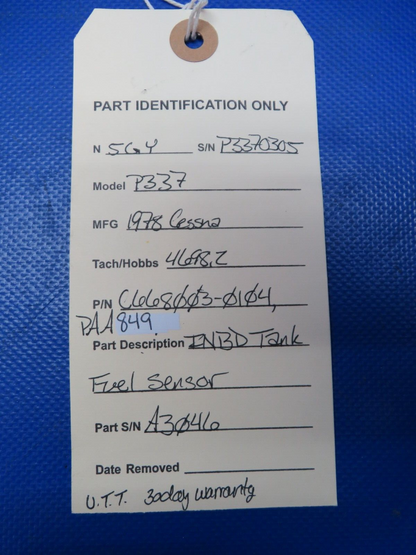 PART IDENTIFICATION ONLY
N 5GY S/N P3370305
Model P337
MFG 1978 Cessna
Tach/Hobbs 4698.2
P/N C668003-0104,
PAA849
Part Description INBD Tank
Fuel Sensor
Part S/N A3046
Date Removed
U.T.T. 30day warranty